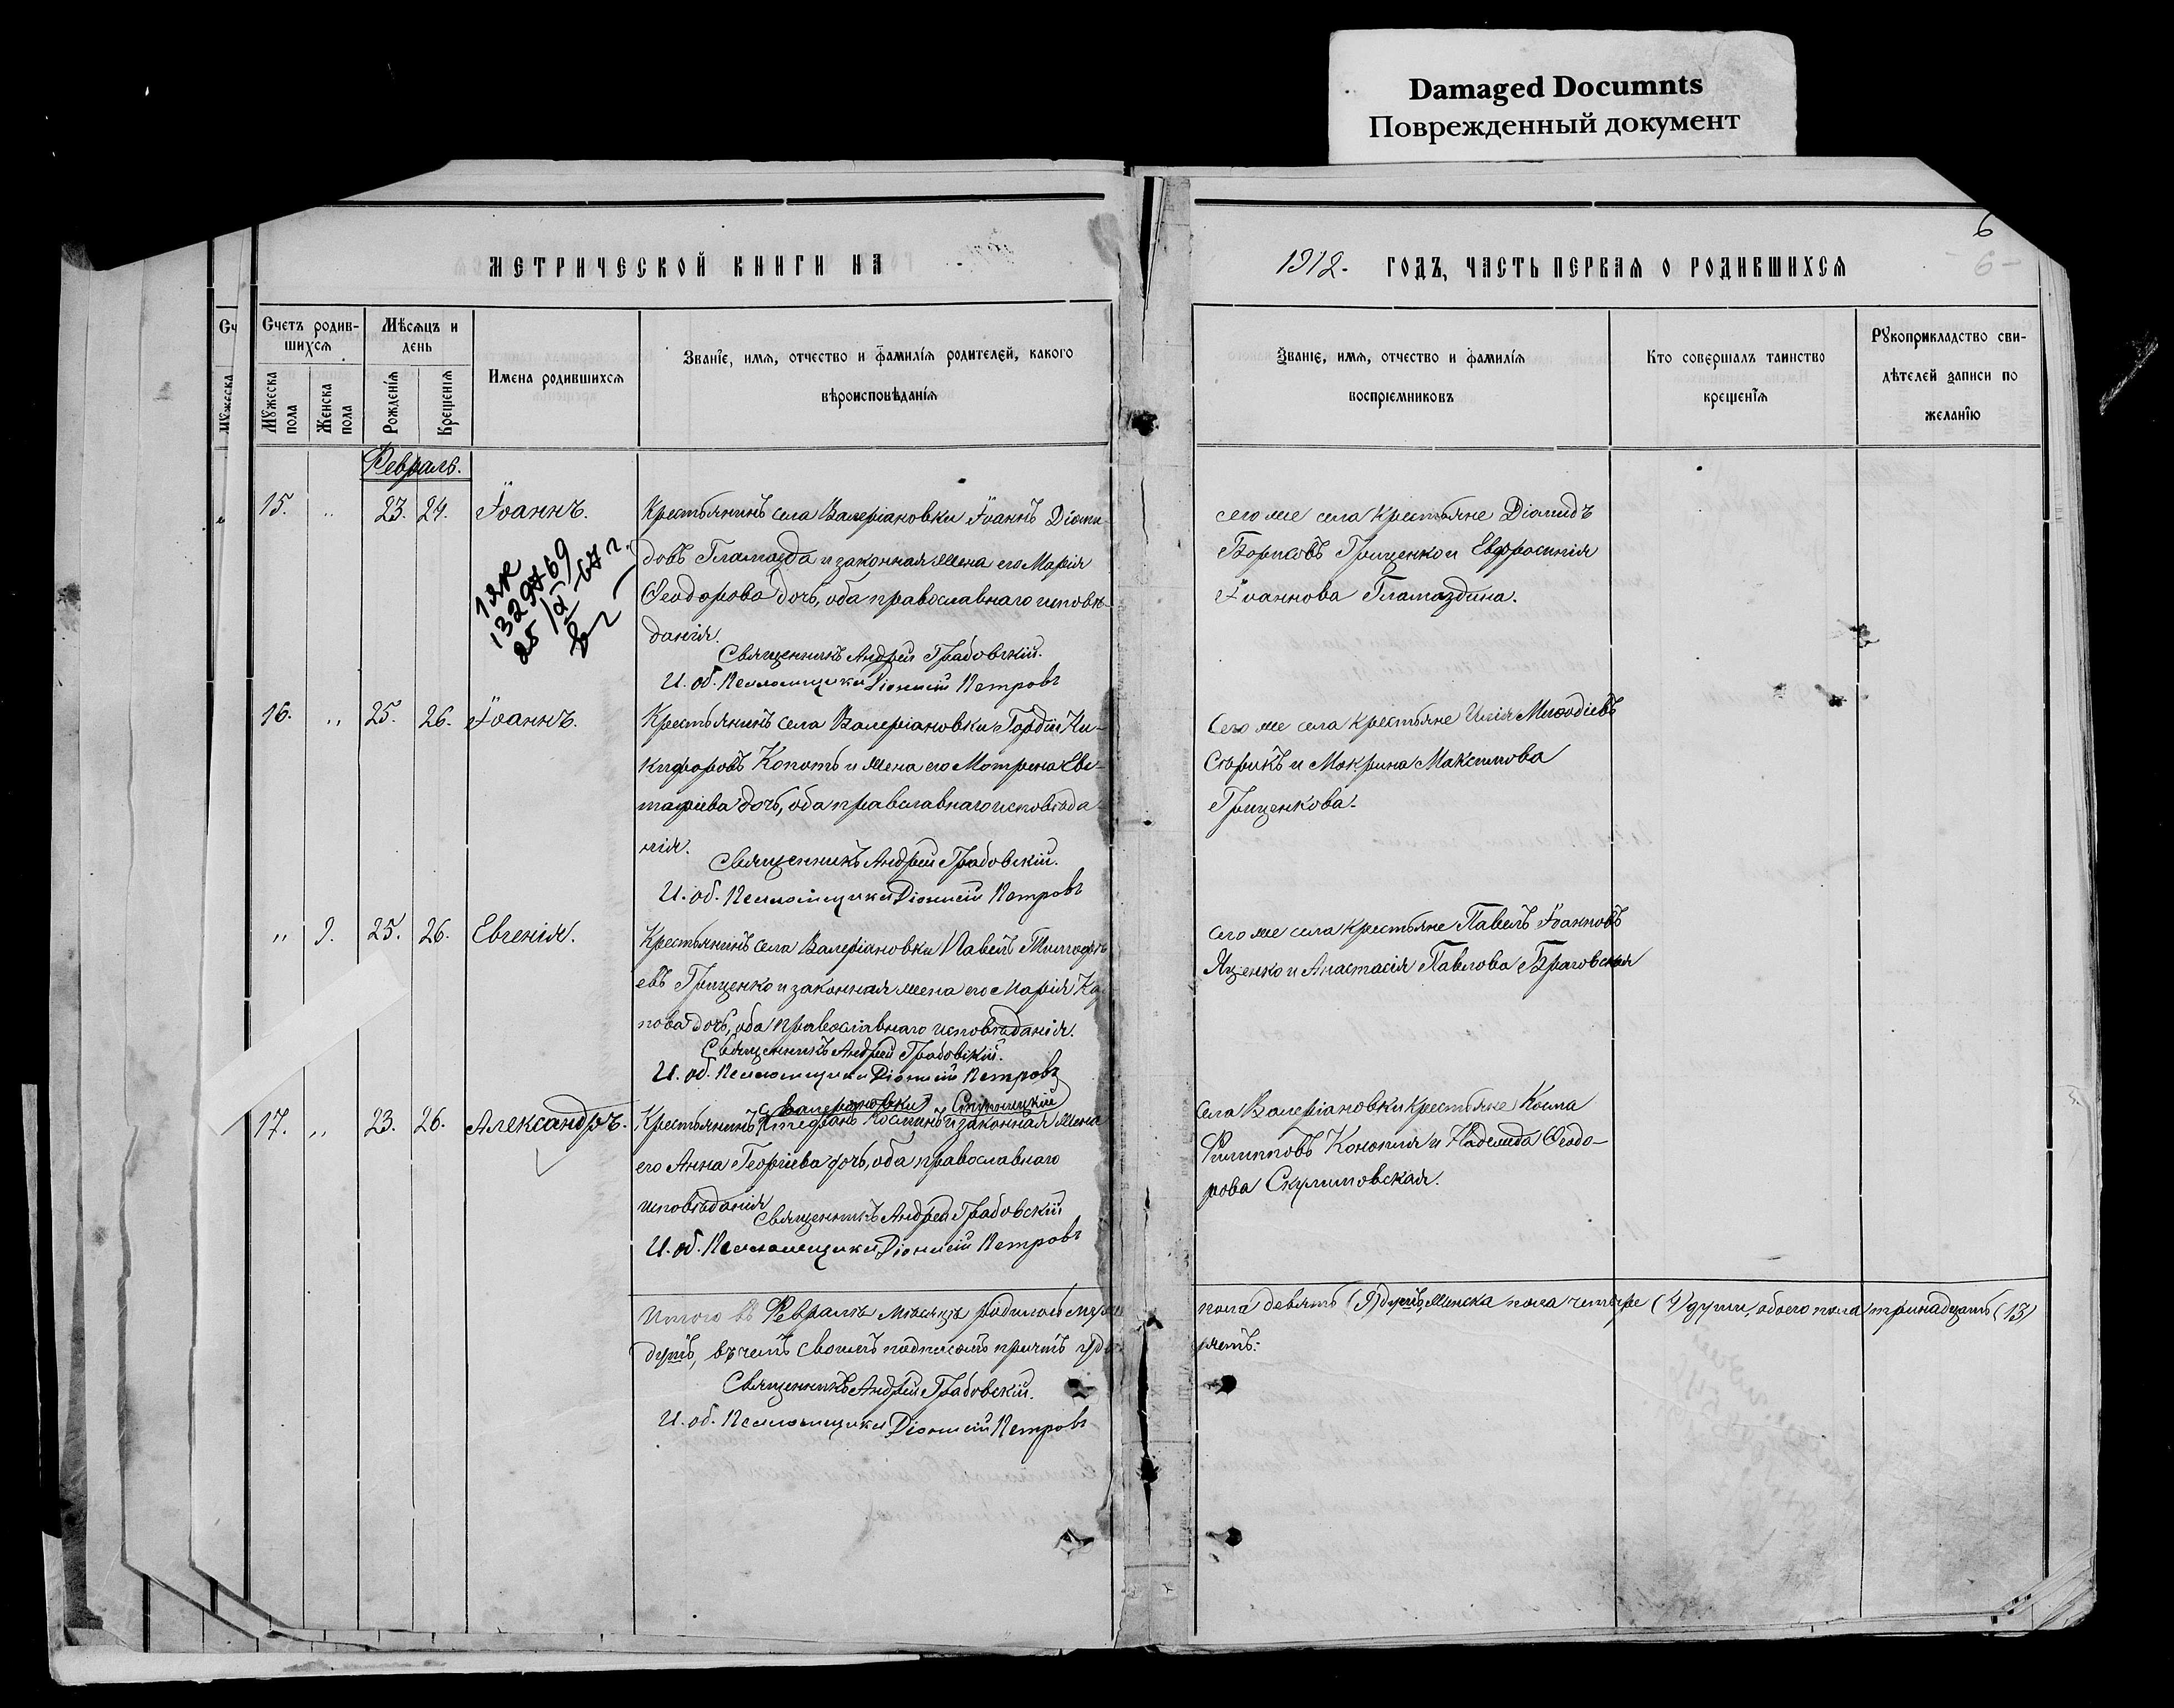 Damaged Documnts
Поврежденный документ
6
МЕТРИЧЕСКОЙ КНИГИ НА
1912. ГОДЪ, ЧАСТЬ ПЕРВАЯ О РОДИВШИХСЯ
Счетъ родив-
шихся
Мѣсяцъ и
день
Мужеска пола
Женска пола
Рожденія
Крещенія
Имена родившихся
Званіе, имя, отчество и фамилія родителей, какого
вѣроисповѣданія
Званіе, имя, отчество и фамилія
воспріемниковъ
Кто совершалъ таинство
крещенія
Рукоприкладство сви-
дѣтелей записи по
желанію
Февраль.
15. „ 23. 24. Іоаннъ.
Крестьянинъ села Валеріановки Іоаннъ Діоми-
довъ Гламазда и законная жена его Марія
Феодорова дочь, оба православнаго исповѣ-
данія.
Священникъ Андрей Грабовскій.
И. об. Псаломщика Діонисій Петровъ
сего же села крестьяне Діомидъ
Борисовъ Грищенко и Евфросинія
Іоаннова Гламаздина.
16. „ 25. 26. Іоаннъ.
Крестьянинъ села Валеріановки Гордій Ни-
кифоровъ Копоть и жена его Мотрона Ев-
тафіева дочь, оба православнаго исповѣда-
нія.
Священникъ Андрей Грабовскій.
И. об. Псаломщика Діонисій Петровъ
Сего же села крестьяне Илія Меѳодіевъ
Старикъ и Макрина Максимова
Грищенкова.
„ 9. 25. 26. Евгенія.
Крестьянинъ села Валеріановки Павелъ Тимоѳе-
евъ Грищенко и законная жена его Марія
пова дочь, оба православнаго исповѣданія.
Священникъ Андрей Грабовскій.
И. об. Псаломщика Діонисій Петровъ
сего же села крестьяне Павелъ Іоанновъ
Яценко и Анастасія Павлова Браговская
17. „ 23. 26. Александръ.
с. Валеріановки
Крестьянинъ Стефанъ Косминъ и законная жена
его Анна Георгіева дочь, оба православнаго
исповѣданія
Священникъ Андрей Грабовскій
И. об. Псаломщика Діонисій Петровъ
Села Валеріановки крестьяне Косма
Филипповъ Конопля и Надежда Феодо-
рова Скулимовская.
Итого въ Февралѣ мѣсяцѣ родилось муже
пола девять (9) душъ, женска пола четыре (4) души, обоего пола тринадцать (13)
душъ, въ чемъ своимъ подписомъ причтъ удо
ряетъ:
Священникъ Андрей Грабовскій.
И. об. Псаломщика Діонисій Петровъ